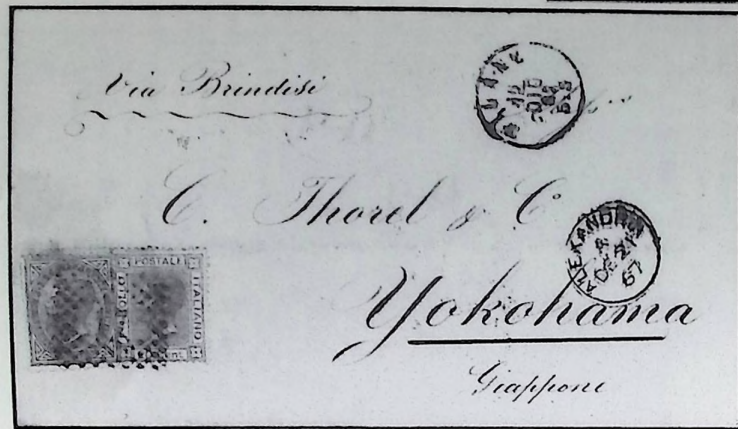 Via Brindisi
MILANO
C. Thorel & C
ALEXANDRIA
A
DE 24
67
POSTALE
BOLLO
ITALIANO
Yokohama
Giappone